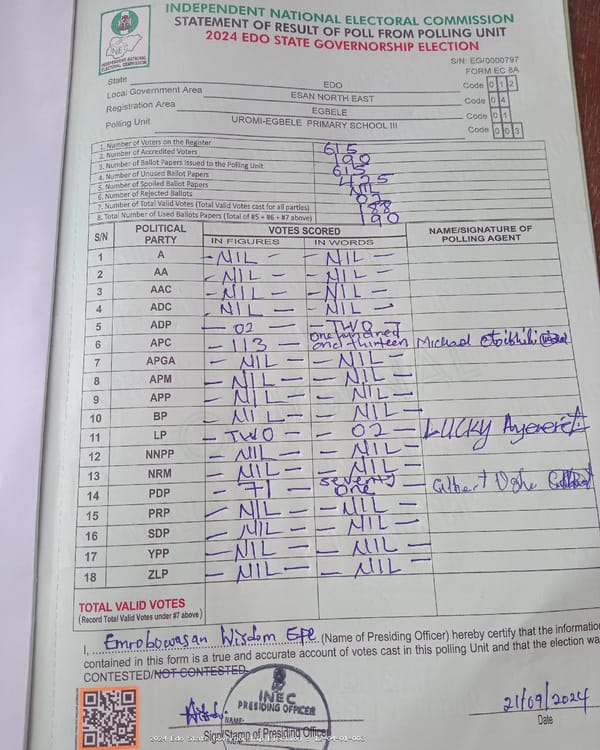 INDEPENDENT NATIONAL ELECTORAL COMMISSION
STATEMENT OF RESULT OF POLL FROM POLLING UNIT
2024 EDO STATE GOVERNORSHIP ELECTION
INEC
INDEPENDENT NATIONAL ELECTORAL COMMISSION
S/N: EG/0000797
FORM EC 8A
State EDO Code 0 1 2
Local Government Area ESAN NORTH EAST Code 0 4
Registration Area EGBELE Code 0 1
Polling Unit UROMI-EGBELE PRIMARY SCHOOL III Code 0 0 3
1. Number of Voters on the Register 615
2. Number of Accredited Voters 190
3. Number of Ballot Papers Issued to the Polling Unit 615
4. Number of Unused Ballot Papers 425
5. Number of Spoiled Ballot Papers NIL
6. Number of Rejected Ballots 02
7. Number of Total Valid Votes (Total Valid Votes cast for all parties) 188
8. Total Number of Used Ballots Papers (Total of #5 + #6 + #7 above) 190
S/N POLITICAL PARTY VOTES SCORED NAME/SIGNATURE OF POLLING AGENT
IN FIGURES IN WORDS
1 A - NIL - - NIL -
2 AA - NIL - - NIL -
3 AAC - NIL - - NIL -
4 ADC - NIL - - NIL -
5 ADP - 02 - - TWO -
6 APC - 113 - One hundred and thirteen Michael
7 APGA - NIL - - NIL -
8 APM - NIL - - NIL -
9 APP - NIL - - NIL -
10 BP - NIL - - NIL -
11 LP - TWO - - 02 - LUCKY
12 NNPP - NIL - - NIL -
13 NRM - NIL - - NIL -
14 PDP - 71 - seventy one
15 PRP - NIL - - NIL -
16 SDP - NIL - - NIL -
17 YPP - NIL - - NIL -
18 ZLP - NIL - - NIL -
TOTAL VALID VOTES
(Record Total Valid Votes under #7 above)
I, Emrobowasan Wisdom Epe (Name of Presiding Officer) hereby certify that the information
contained in this form is a true and accurate account of votes cast in this polling Unit and that the election wa
CONTESTED/NOT CONTESTED
INEC
PRESIDING OFFICER
NAME:
Sign/Stamp of Presiding Officer
21/09/2024
Date